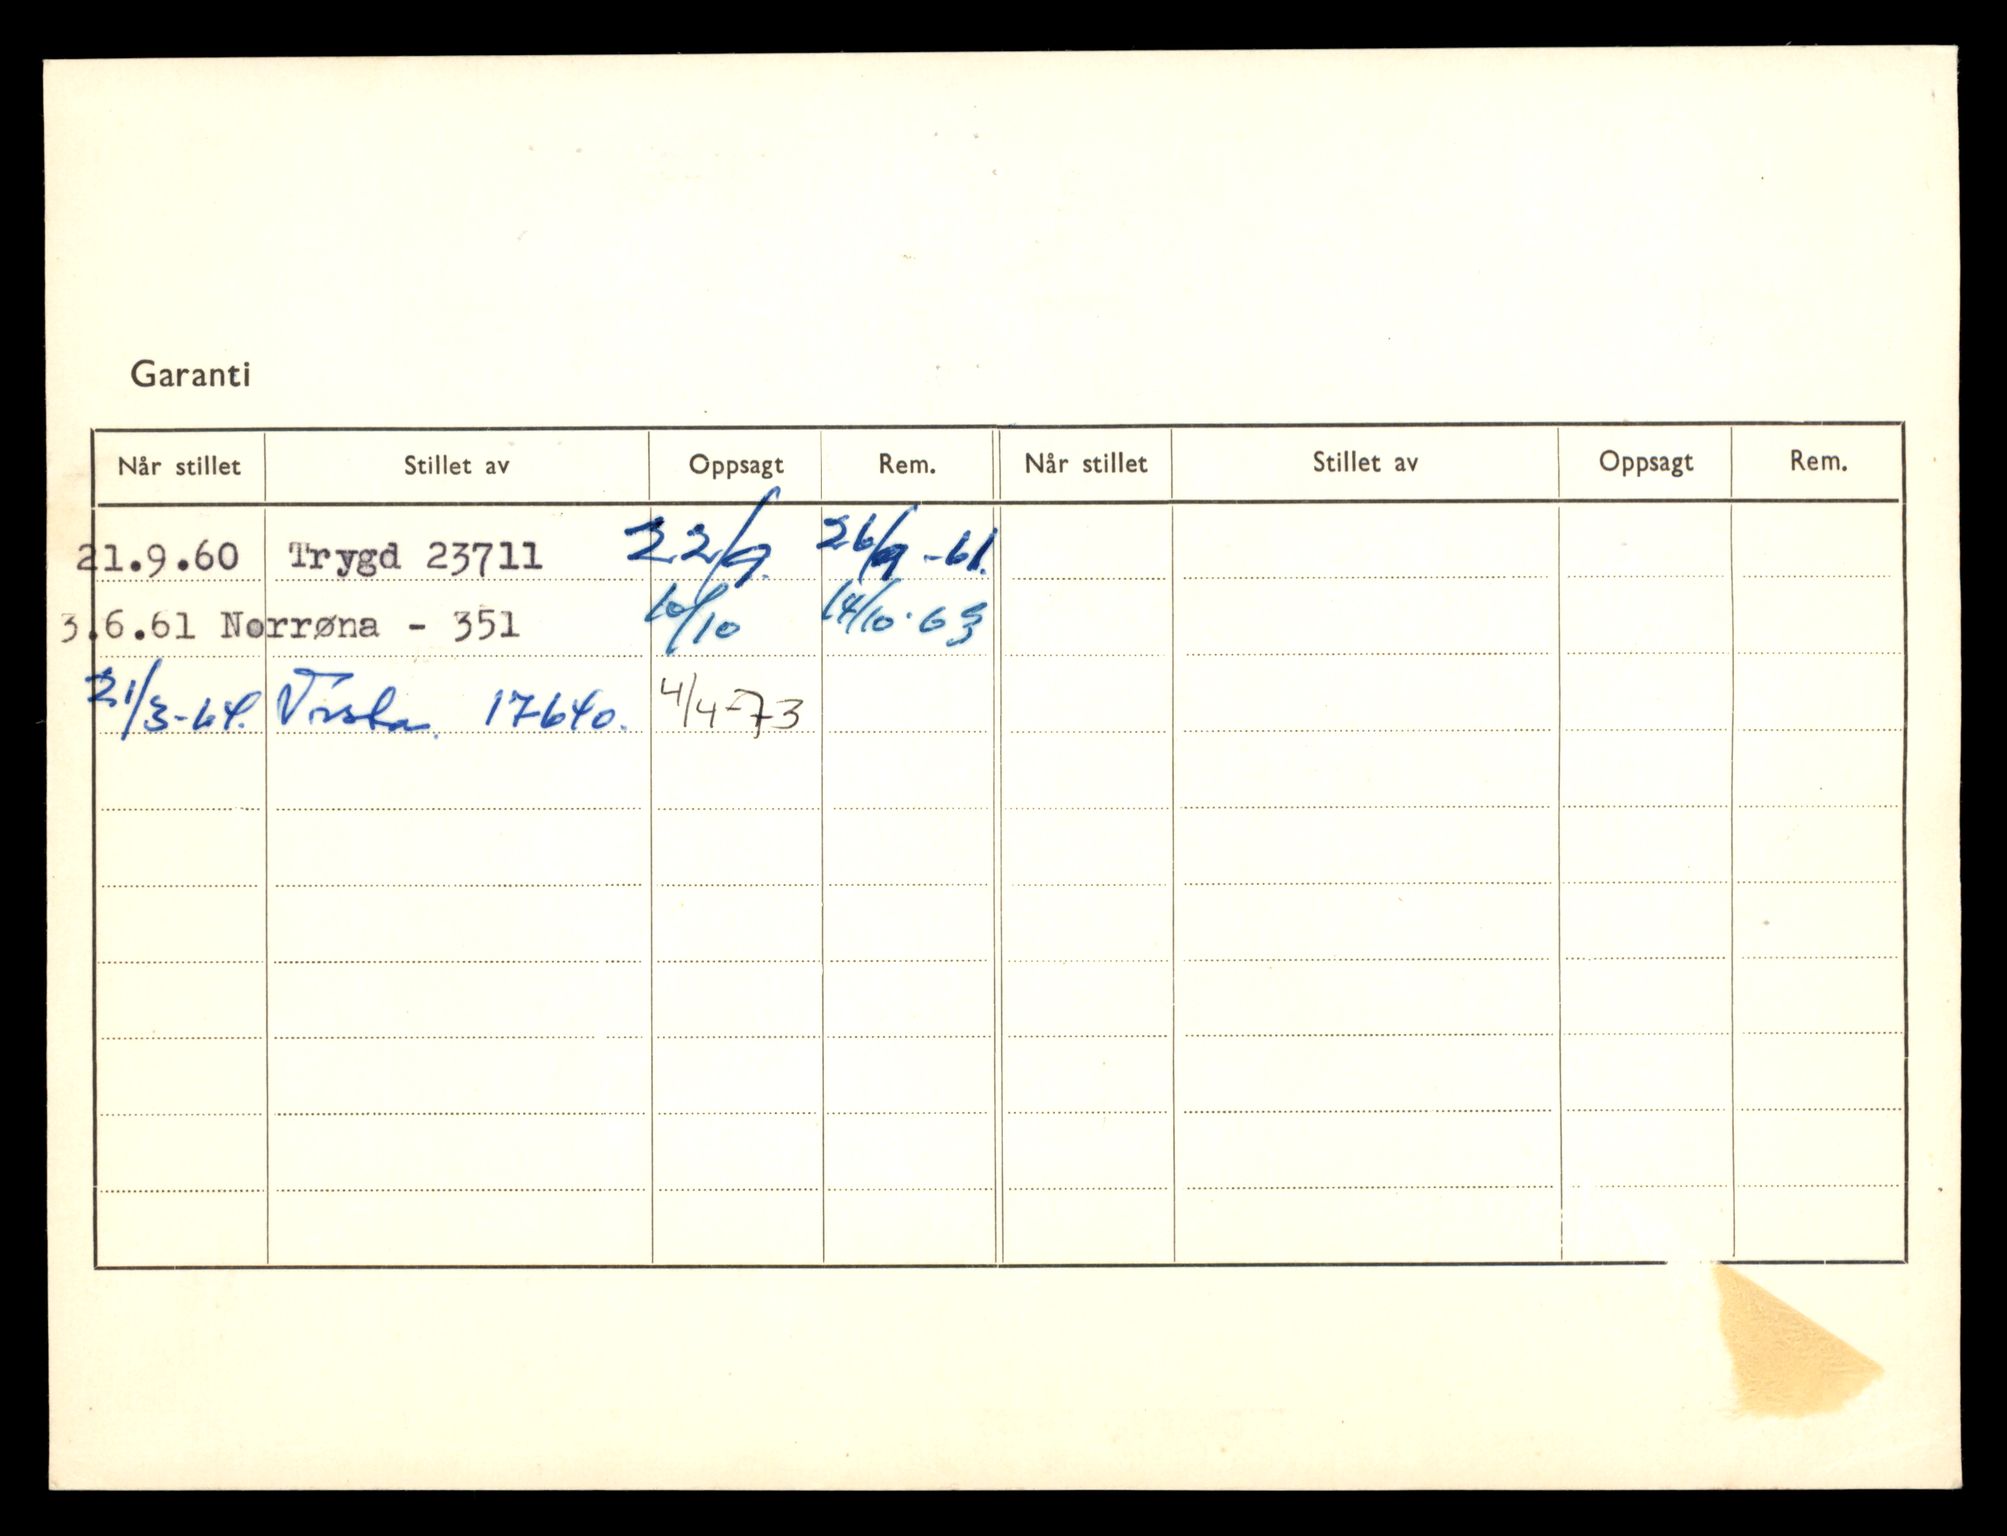 Garanti
Når stillet Stillet av Oppsagt Rem. Når stillet Stillet av Oppsagt Rem.
21.9.60 Trygd 23711 22/9. 26/9-61.
3.6.61 Norrøna - 351 10/10 14/10.63
21/3-64. 17640. 4/4-73